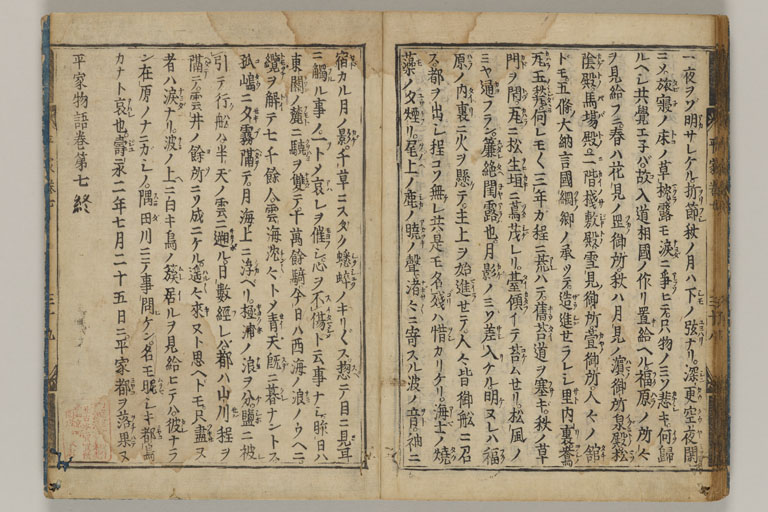 一夜ヲゾ明サレケル折節秋ノ月ハ下ノ弦ナリ。深更空夜閑
ニメ旅寝ノ床ノ草枕露モ涙ニ爭ヒテ只物ノミゾ悲キ何歸
ルヘシ共覺エ子バ故入道相國ノ作リ置給ヘル福原ノ所々
ヲ見給フニ春ハ花見ノ岡御所秋ハ月見ノ濱御所泉殿松
陰殿馬場殿二階棧敷殿雪見御所萱御所人々ノ館
ドモ五條大納言國綱卿ノ承ツテ造進セラレシ里内裏鴦
瓦玉甃何レモく三年カ程ニ荒ハテ舊苔道ヲ塞キ。秋ノ草
門ヲ閉瓦ニ松生垣ニ蔦茂レリ。臺傾イテ苔ムセリ。松風ノ
ミヤ通フラン。簾絶閨露也月影ノミゾ差入ケル明ヌレハ福
原ノ内裏ニ火ヲ懸テ主上ヲ始進セテ人々皆御船ニ召
ス都ヲ出シ程コソ無レ共是モ名殘ハ惜カリケリ。海士ノ燒
藻ノ夕煙リ。尾上ノ鹿ノ曉ノ聲渚々ニ寄スル波ノ音袖ニ
宿カル月ノ影千草ニスダク蟋蟀ノキリくス惣テ目ニ見耳
ニ觸ル事ノ一トメ哀レヲ催シ心ヲ不傷ト云事ナシ昨日ハ
東關ノ麓ニ轡ヲ雙テ十萬餘騎今日ハ西海ノ浪ノウヘニ
纜ヲ解テ七千餘人雲海沈々トメ青天既ニ暮ナントス
孤嶋ニ夕霧隔テ月海上ニ浮ベリ。極浦ノ浪ヲ分鹽ニ被
引テ行船ハ半天ノ雲ニ遡ル日數經レハ都ハ山川程ヲ
隔テ雲井ノ餘所ニゾ成ニケル遥々來ヌト思ヘドモ只盡ヌ
者ハ涙ナリ。波ノ上ニ白キ鳥ノ簇居ルヲ見給ヒテハ彼ナラ
ン在原ノナニカシノ。隅田川ニテ事問ケン名モ眤シキ都鳥
カナト哀也壽永二年七月二十五日ニ平家都ヲ落果ヌ
平家物語卷第七終